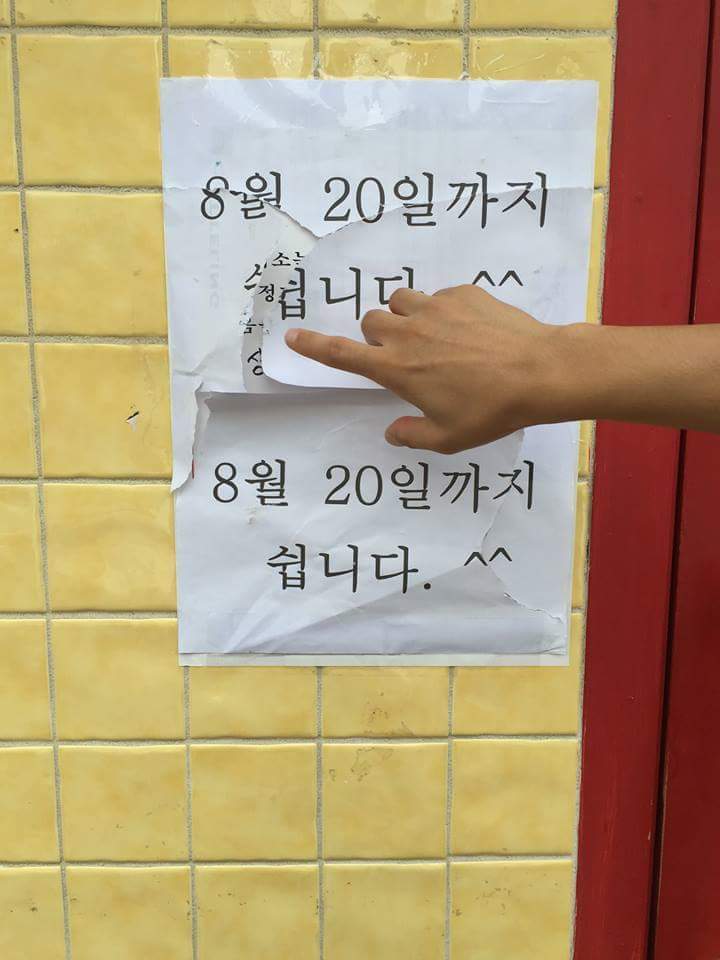 8월 20일까지
소는
정
쉽니다. ^^
8월 20일까지
쉽니다. ^^